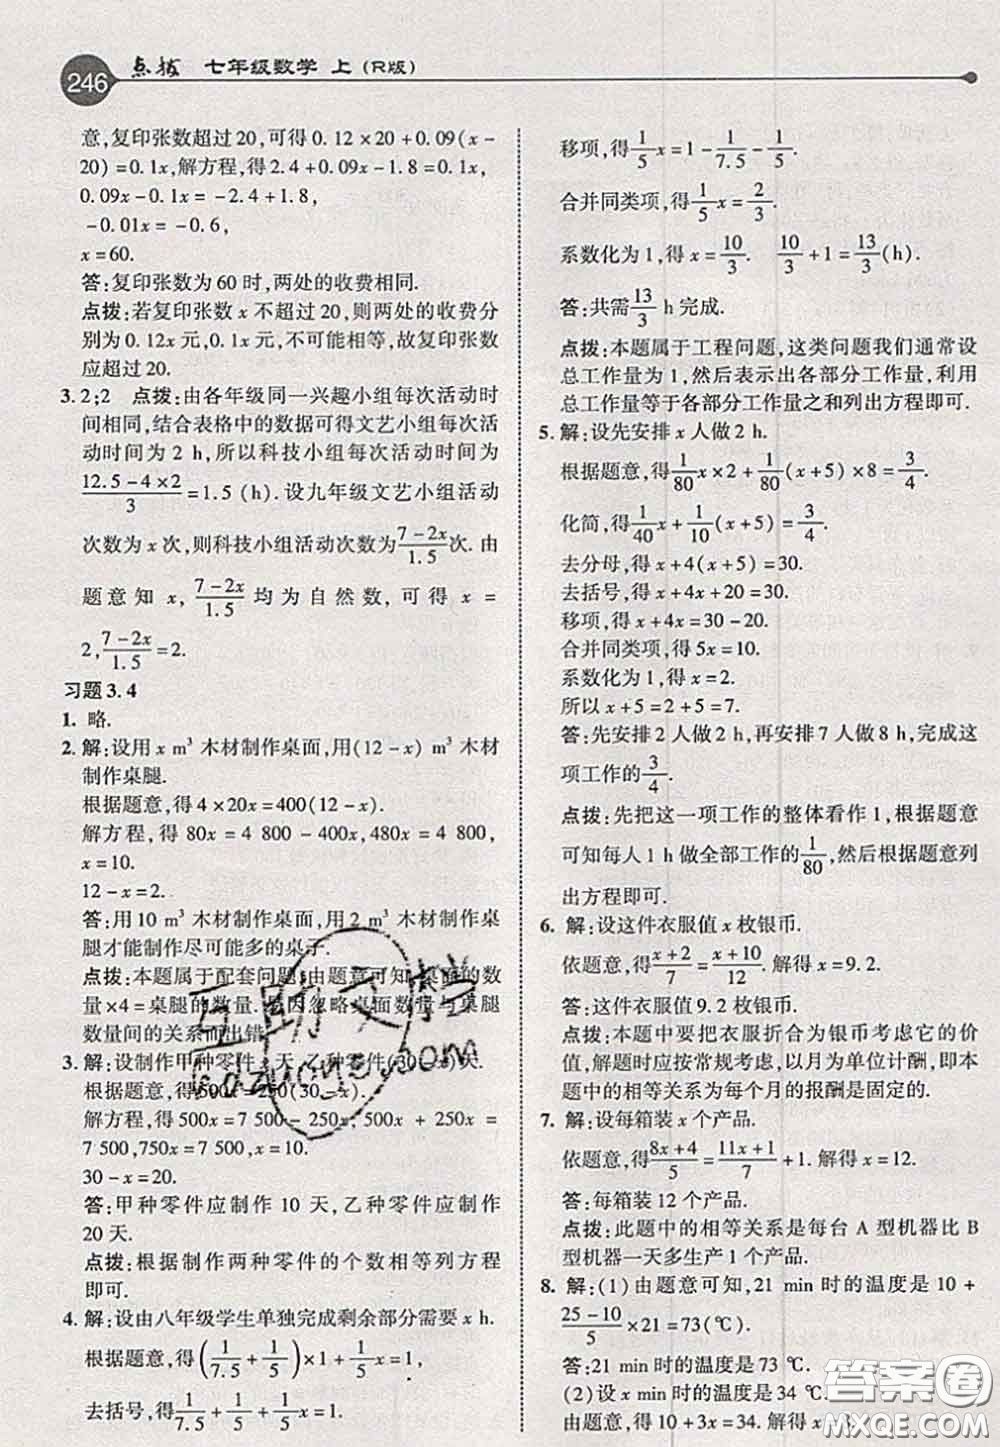 246 点拨 七年级数学 上（R版）
意,复印张数超过20,可得0.12×20+0.09(x-
20)=0.1x,解方程,得2.4+0.09x-1.8=0.1x,
0.09x-0.1x=-2.4+1.8,
-0.01x=-0.6,
x=60.
答:复印张数为60时,两处的收费相同.
点拨:若复印张数x不超过20,则两处的收费分
别为0.12x元,0.1x元,不可能相等,故复印张数
应超过20.
3. 2;2 点拨:由各年级同一兴趣小组每次活动时
间相同,结合表格中的数据可得文艺小组每次活
动时间为2 h,所以科技小组每次活动时间为
(12.5-4×2)/3=1.5(h).设九年级文艺小组活动
次数为x次,则科技小组活动次数为(7-2x)/1.5次.由
题意知x,(7-2x)/1.5均为自然数,可得x=
2,(7-2x)/1.5=2.
习题3.4
1. 略.
2. 解:设用x m³木材制作桌面,用(12-x) m³木材
制作桌腿.
根据题意,得4×20x=400(12-x).
解方程,得80x=4 800-400x,480x=4 800,
x=10.
12-x=2.
答:用10 m³木材制作桌面,用2 m³木材制作桌
腿才能制作尽可能多的桌子.
点拨:本题属于配套问题:由题意可知,桌面的数
量×4=桌腿的数量.易因忽略桌面数量与桌腿
数量间的关系而出错.
3. 解:设制作甲种零件x天,乙种零件(30-x)天.
根据题意,得500x=250(30-x).
解方程,得500x=7 500-250x,500x+250x=
7 500,750x=7 500,x=10.
30-x=20.
答:甲种零件应制作10天,乙种零件应制作
20天.
点拨:根据制作两种零件的个数相等列方程
即可.
4. 解:设由八年级学生单独完成剩余部分需要x h.
根据题意,得(1/7.5+1/5)×1+1/5x=1,
去括号,得1/7.5+1/5+1/5x=1.
移项,得1/5x=1-1/7.5-1/5.
合并同类项,得1/5x=2/3.
系数化为1,得x=10/3. 10/3+1=13/3(h).
答:共需13/3 h完成.
点拨:本题属于工程问题,这类问题我们通常设
总工作量为1,然后表示出各部分工作量,利用
总工作量等于各部分工作量之和列出方程即可.
5. 解:设先安排x人做2 h.
根据题意,得1/80x×2+1/80(x+5)×8=3/4.
化简,得1/40x+1/10(x+5)=3/4.
去分母,得x+4(x+5)=30.
去括号,得x+4x+20=30.
移项,得x+4x=30-20.
合并同类项,得5x=10.
系数化为1,得x=2.
所以x+5=2+5=7.
答:先安排2人做2 h,再安排7人做8 h,完成这
项工作的3/4.
点拨:先把这一项工作的整体看作1,由题意
可知每人1 h做全部工作的1/80,然后根据题意列
出方程即可.
6. 解:设这件衣服值x枚银币.
依题意,得(x+2)/7=(x+10)/12. 解得x=9.2.
答:这件衣服值9.2枚银币.
点拨:本题中要把衣服折合为银币考虑它的价
值,解题时应按常规考虑,以月为单位计酬,即本
题中的相等关系为每个月的报酬是固定的.
7. 解:设每箱装x个产品.
依题意,得(8x+4)/5=(11x+1)/7+1.解得x=12.
答:每箱装12个产品.
点拨:此题中的相等关系是每台A型机器比B
型机器一天多生产1个产品.
8. 解:(1)由题意可知,21 min时的温度是10+
(25-10)/5×21=73(℃).
答:21 min时的温度是73 ℃.
(2)设x min时的温度是34 ℃.
由题意,得10+3x=34.解得x=8.
互助文学
hdzuoye.com
答案圈
MXQE.COM